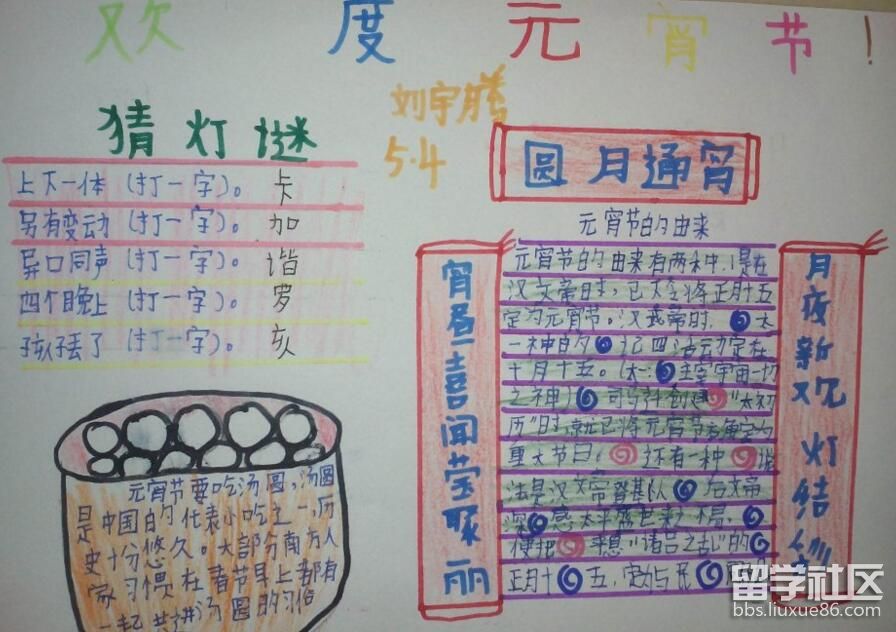 欢度元宵节！
刘宇腾
5.4
猜灯谜
上下一体（打一字）。卡
另有变动（打一字）。加
异口同声（打一字）。谐
四个晚上（打一字）。罗
孩子丢了（打一字）。亥
元宵节要吃汤圆，汤圆
是中国的代表小吃之一，历
史十分悠久。大部分南方人
家习惯在春节早上都有
一起共进汤圆的习俗
圆月通宵
宵昼喜闻莹聚丽
元宵节的由来
元宵节的由来有两种，1是在
汉文帝时，已下令将正月十五
定为元宵节。汉武帝时，太
一神的 记四活动定在
十月十五。（太 主宰宇宙一切
之神）司马迁创建"太初
历"时，就已将元宵节 确定为
重大节日。还有一种 说
法是汉文帝登基队 后文帝
深 感太平盛世来之不易，
便把 平息"诸吕之乱"的
正月十五，定为 民
月夜新 灯结
留学社区
bbs.liuxue86.com